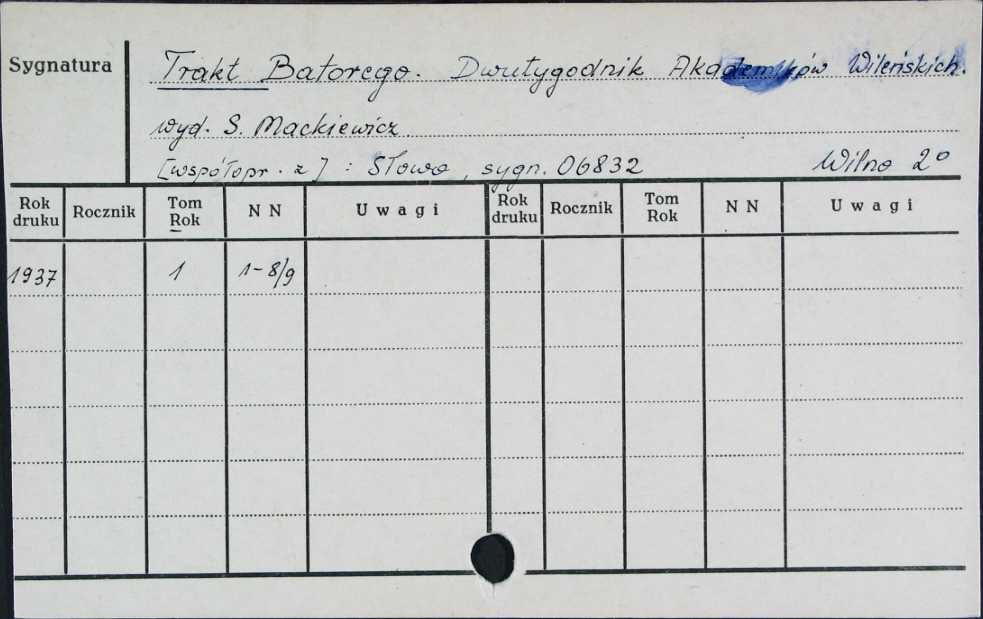 Sygnatura
Trakt Batorego. Dwutygodnik Akademików Wileńskich.
wyd. S. Mackiewicz
[współopr. z] : Słowo, sygn. 06832 Wilno 2°
Rok druku Rocznik Tom Rok N N Uwagi Rok druku Rocznik Tom Rok N N Uwagi
1937 1 1-8/9